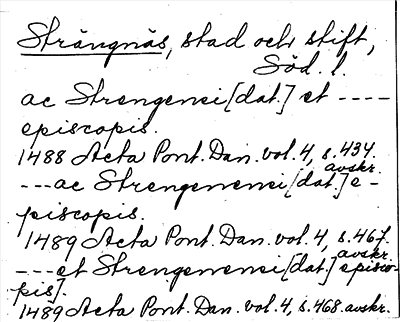 Strängnäs, stad och stift,
Söd. l.
ac Strengenei[dat.] et ----
episcopis.
1488 Acta Pont. Dan. vol. 4, s. 434.
avskr.
---ac Strengenensi[dat.] e-
piscopis.
1489 Acta Pont. Dan. vol. 4, s. 467.
avskr.
---et Strengenensi[dat.] episco-
pis].
1489 Acta Pont. Dan. vol. 4, s. 468. avskr.